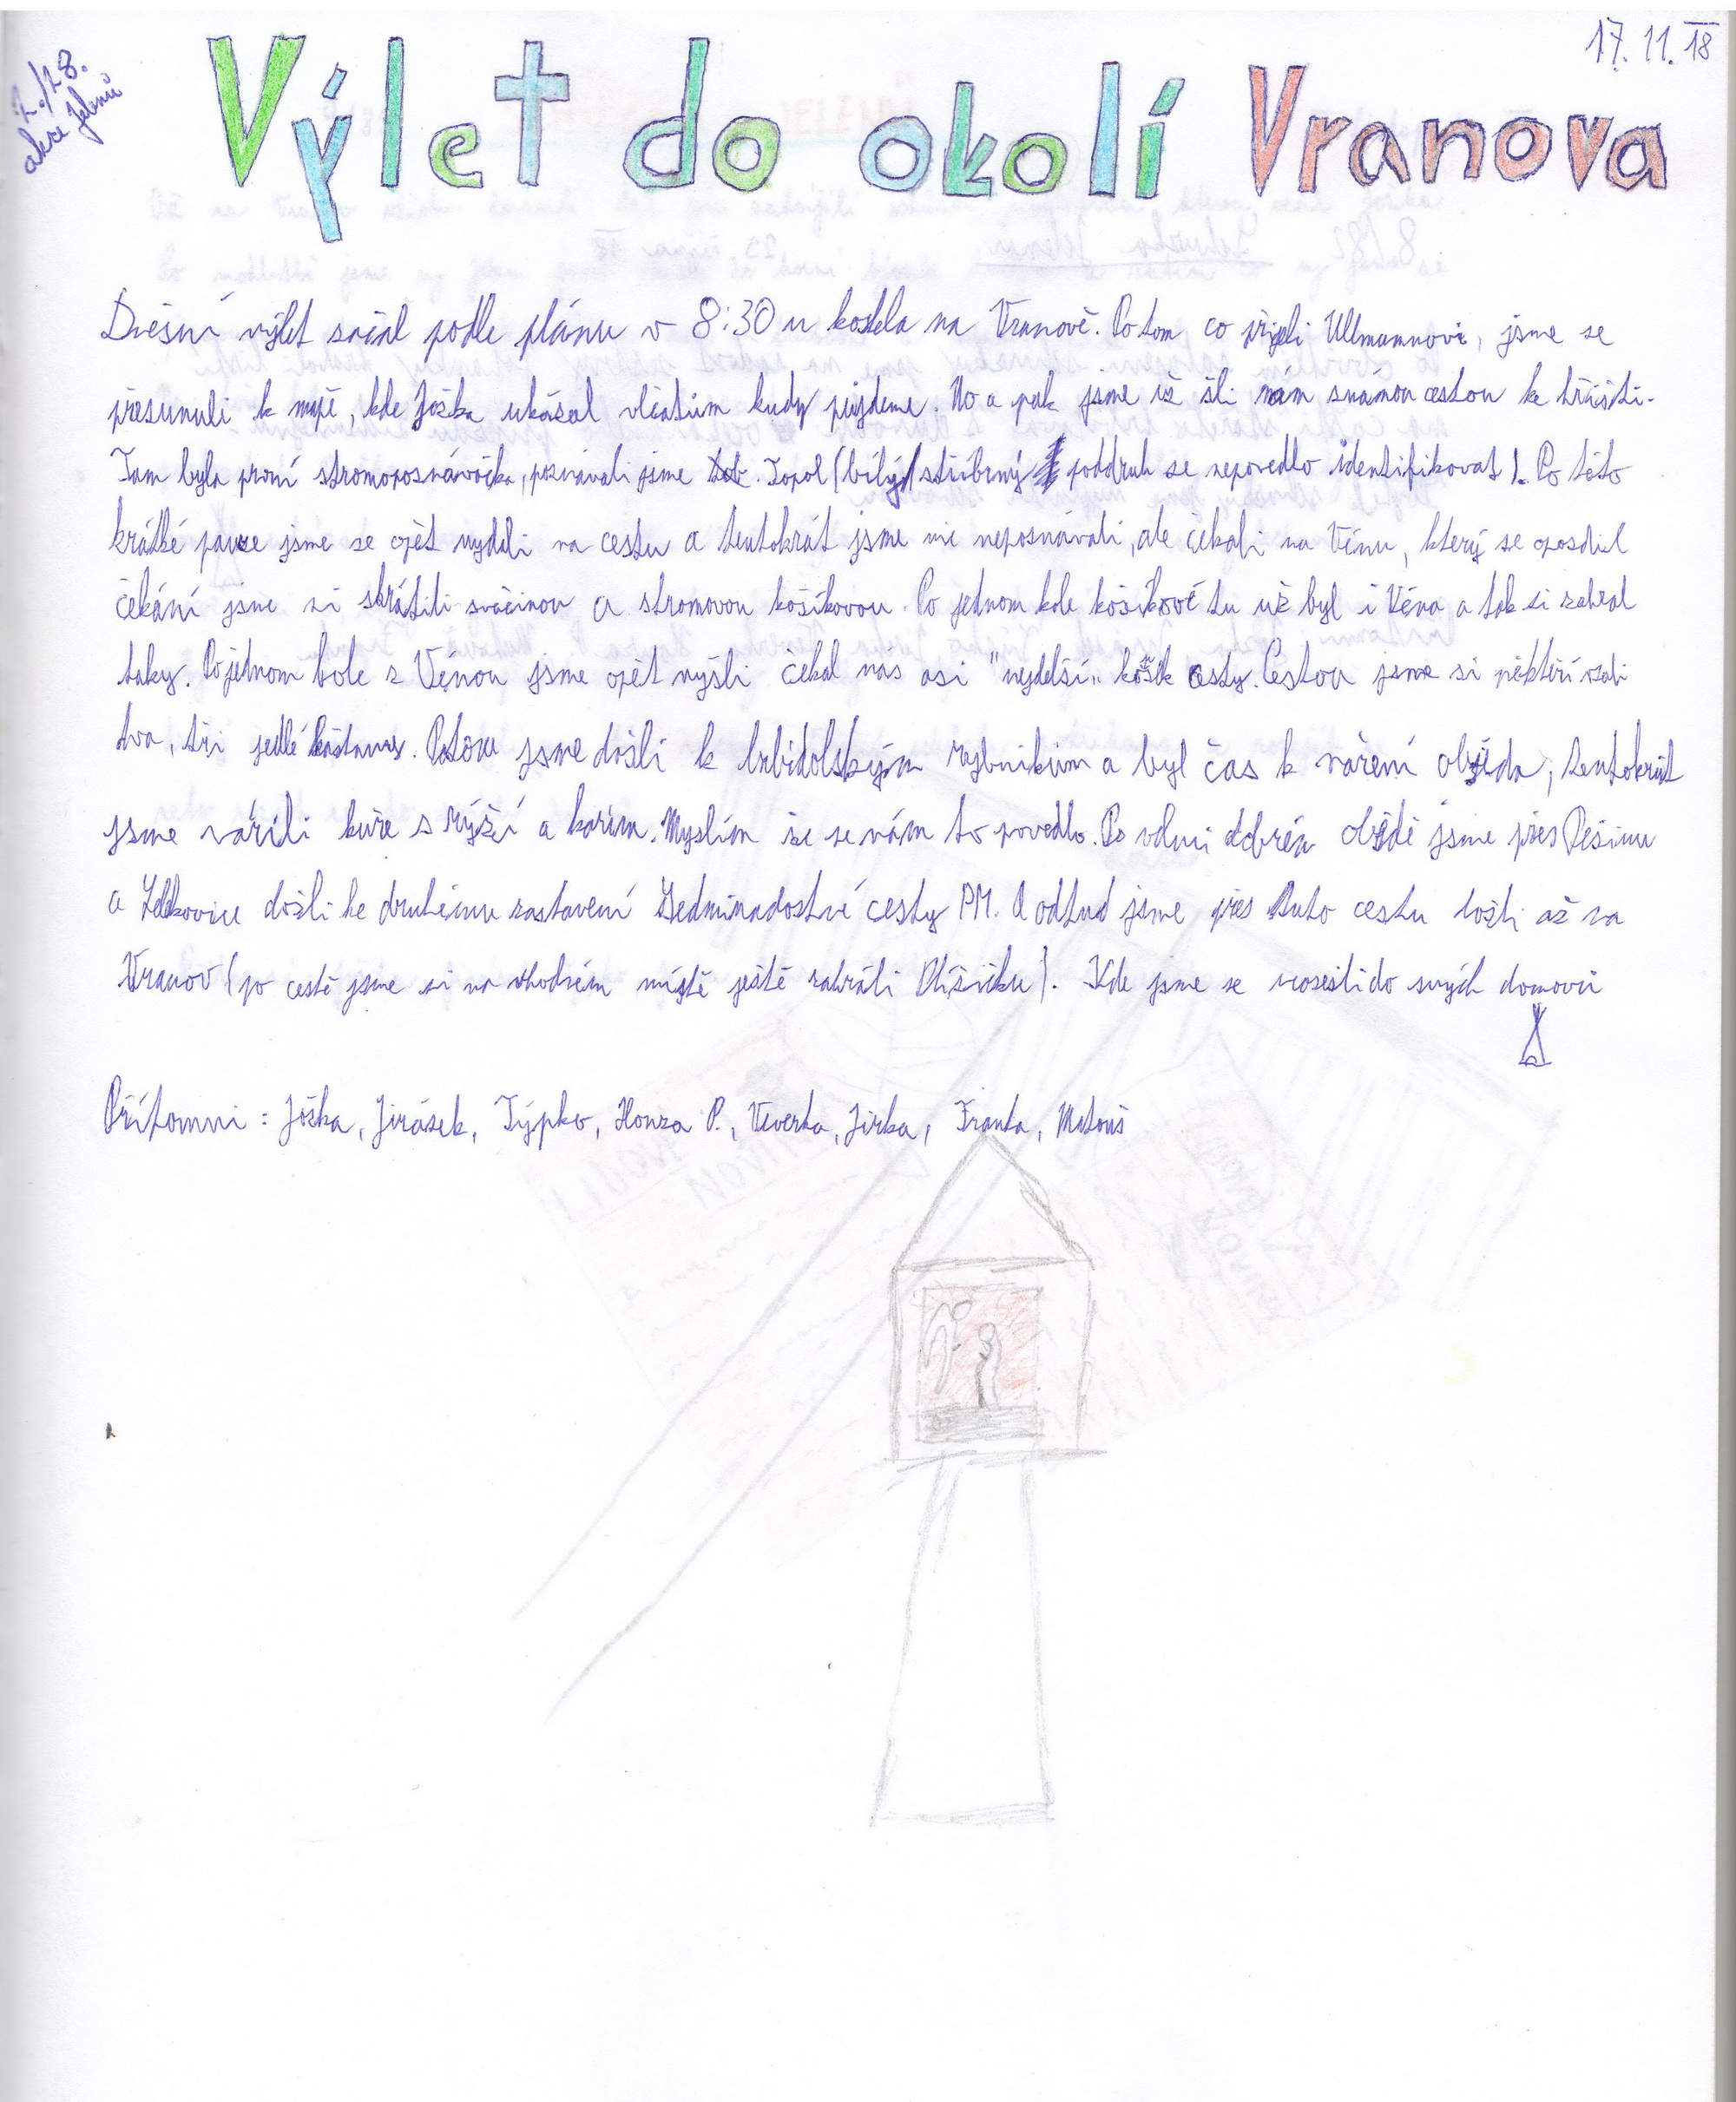 17. 11. 18
akce Jelenů
Výlet do okolí Vranova
Dnešní výlet začal podle plánu v 8:30 u kostela na Vranově. Potom co přijeli Ullmannovi, jsme se
přesunuli k mapě, kde Jožka ukázal vlčatům kudy půjdeme. No a pak jsme už šli nám známou cestou ke hřišti.
Tam byla první stromopoznávačka, poznávali jsme Topol (bílý/stříbrný poddruh se nepovedlo identifikovat). Po této
krátké pauze jsme se opět vydali na cestu a tentokrát jsme nic nepoznávali, ale čekali na Vénu, který se opozdil
čekání jsme si zkrátili svačinou a stromovou košíkovou. Po jednom kole košíkové tu už byl i Véna a tak si zahrál
taky. Po jednom kole s Vénou jsme opět vyšli čekal nás asi "nejdelší" kousek cesty. Cestou jsme si někteří vzali
dva, tři jedlé kaštany. Potom jsme došli k rybníkům a byl čas k vaření oběda, tentokrát
jsme vařili kuře s rýží a karim. Myslím že se nám to povedlo. Po velmi dobrém obědě jsme přes Pešinu
a Lelekovice došli ke druhému zastavení Sedmiradostné cesty PM. A odtud jsme přes tuto cestu došli až na
Vranov (po cestě jsme si na vhodném místě ještě zahráli Plížičku). Kde jsme se rozešli do svých domovů
Přítomni: Jožka, Jirásek, Týpko, Honza P., Veverka, Jirka, Franta, Matouš